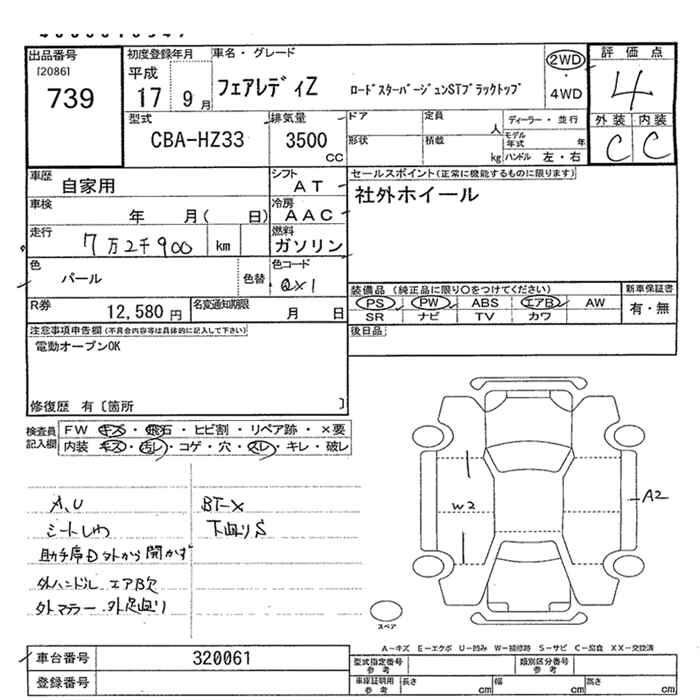 出品番号 初度登録年月 車名・グレード 評価点
[2086] 平成
739 17 9月 フェアレディZ ロードスターバージョンSTブラックトップ 2WD・4WD 4
型式 排気量 ドア 定員 人 ディーラー・並行 外装 内装
CBA-HZ33 3500 cc 形状 積載 kg モデル年式 年 ハンドル 左・右 C C
車歴 自家用 シフト AT セールスポイント(正常に機能するものに限ります)
車検 年 月( 日) 冷房 AAC 社外ホイール
走行 7万2千900 km 燃料 ガソリン
色 パール 色替 色コード QX1
装備品(純正品に限り○をつけてください) 新車保証書
R券 12,580円 名変通知期限 月 日 PS PW ABS エアB AW 有・無
SR ナビ TV カワ
注意事項申告欄(不具合内容等は具体的に記入して下さい) 後日品
電動オープンOK
修復歴 有〔箇所 〕
検査員記入欄 FW キズ・飛石・ヒビ割・リペア跡・×要
内装 キズ・汚レ・コゲ・穴・スレ・キレ・破レ
A,U BT-X
シートしわ 下廻りS
助手席D外から開かず
外ハンドル エアB欠
外マフラー 外足廻り
W2 A2
スペア
A-キズ E-エクボ U-凹み W-補修跡 S-サビ C-腐食 XX-交換済
車台番号 320061 型式指定番号 参考 類別区分番号 参考
登録番号 車庫証明用 参考 長さ cm 幅 cm 高さ cm